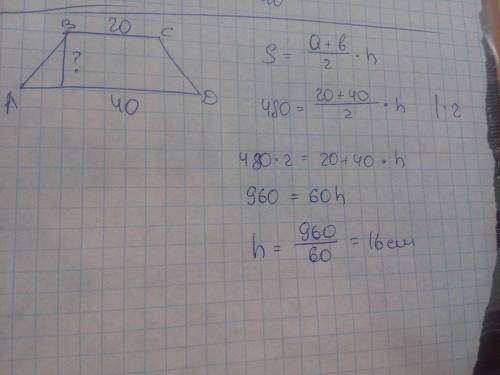 B 20 C
?
A 40 D
S = a + b / 2 · h
480 = 20 + 40 / 2 · h | · 2
480 · 2 = 20 + 40 · h
960 = 60h
h = 960 / 60 = 16 cm